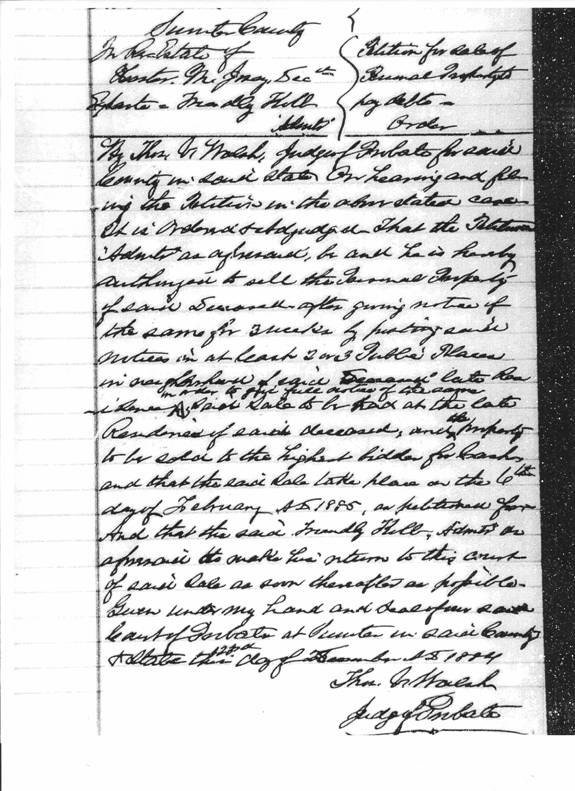 Sumter County
In Re Estate of
M. Joey, Dec'd
Exparte = Friendly Hill
Admtr
Petition for Sale of
Personal Property to
pay debts =
Order
By Thos. V. Walsh, Judge of Probate for said
County in said State On hearing and fil-
ing the Petition in the above stated case
It is Ordered & adjudged That the Petitioner
Admtr as aforesaid, be and he is hereby
authorized to sell the Personal Property
of said Deceased after giving notice of
the same for 2 weeks by posting said
notices in at least 2 or 3 Public Places
in neighborhood of said Deceased late Res
in order to give full notice of the same
idence, Said Sale to be had at the late
Residence of said deceased, and the Property
to be sold to the highest bidder for Cash,
and that the said Sale take place on the 6th
day of February AD 1885, as petitioned for
And that the said Friendly Hill, Admtr as
aforesaid do make his return to this court
of said Sale as soon thereafter as possible.
Given under my hand and Seal of our said
Court of Probate at Sumter in said County
& State this day of December AD 1884
Thos. V. Walsh
Judge of Probate